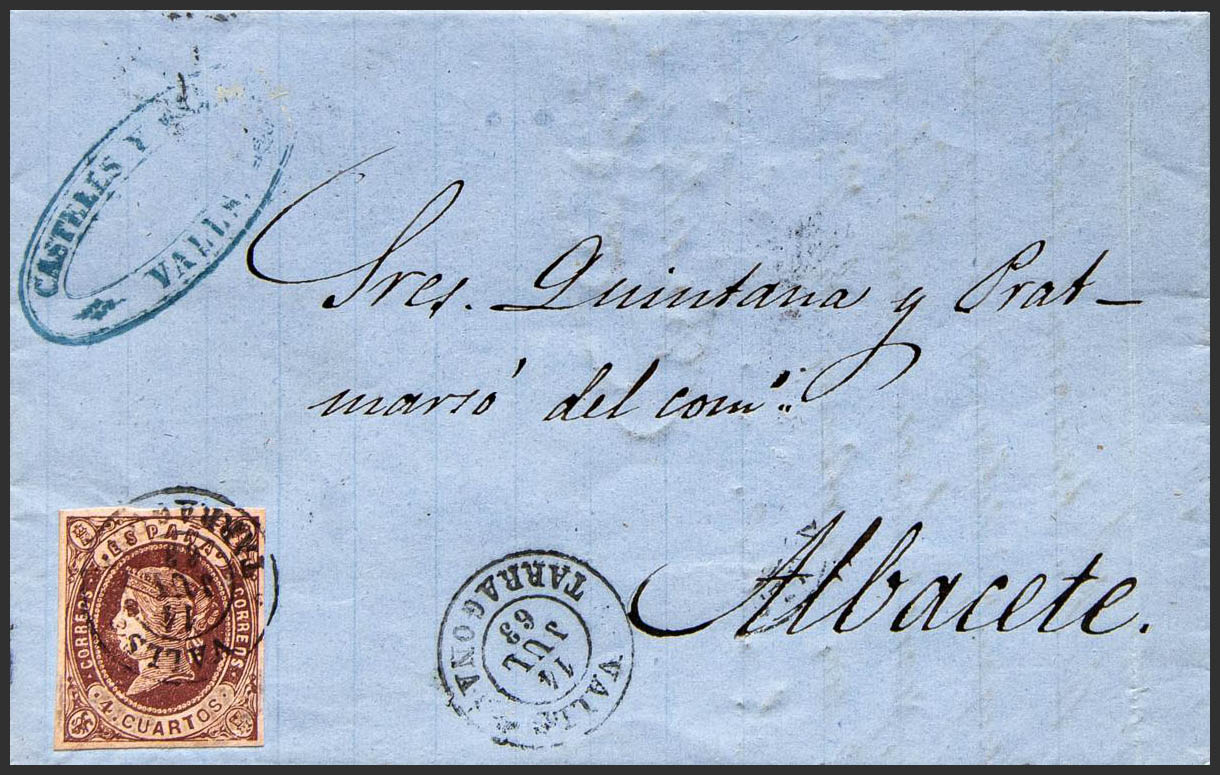 CASTELLS Y
VALLS.
Sres. Quintana y Prat-
marsó del comº
Albacete.
ESPAÑA
CORREOS
CORREOS
4 CUARTOS
VALLS
14
JUL
63
TARRAGONA
VALLS
14
JUL
63
TARRAGONA